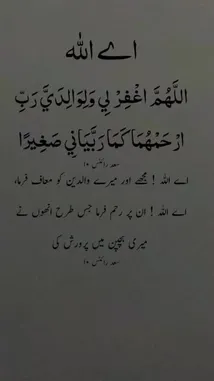 اے اللہ
اللَّهُمَّ اغْفِرْ لِي وَلِوَالِدَيَّ رَبِّ
ارْحَمْهُمَا كَمَا رَبَّيَانِي صَغِيرًا
سعد رائٹس ۱۰
اے اللہ ! مجھے اور میرے والدین کو معاف فرما،
اے اللہ ! ان پر رحم فرما جس طرح انھوں نے
میری بچپن میں پرورش کی
سعد رائٹس ۱۰